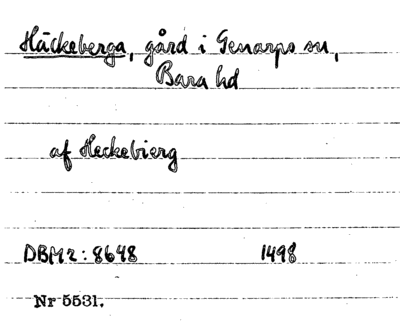 Häckeberga, gård i Genarps sn,
Bara hd
af Heckebierg
DBM2: 8648 1498
Nr 5531.